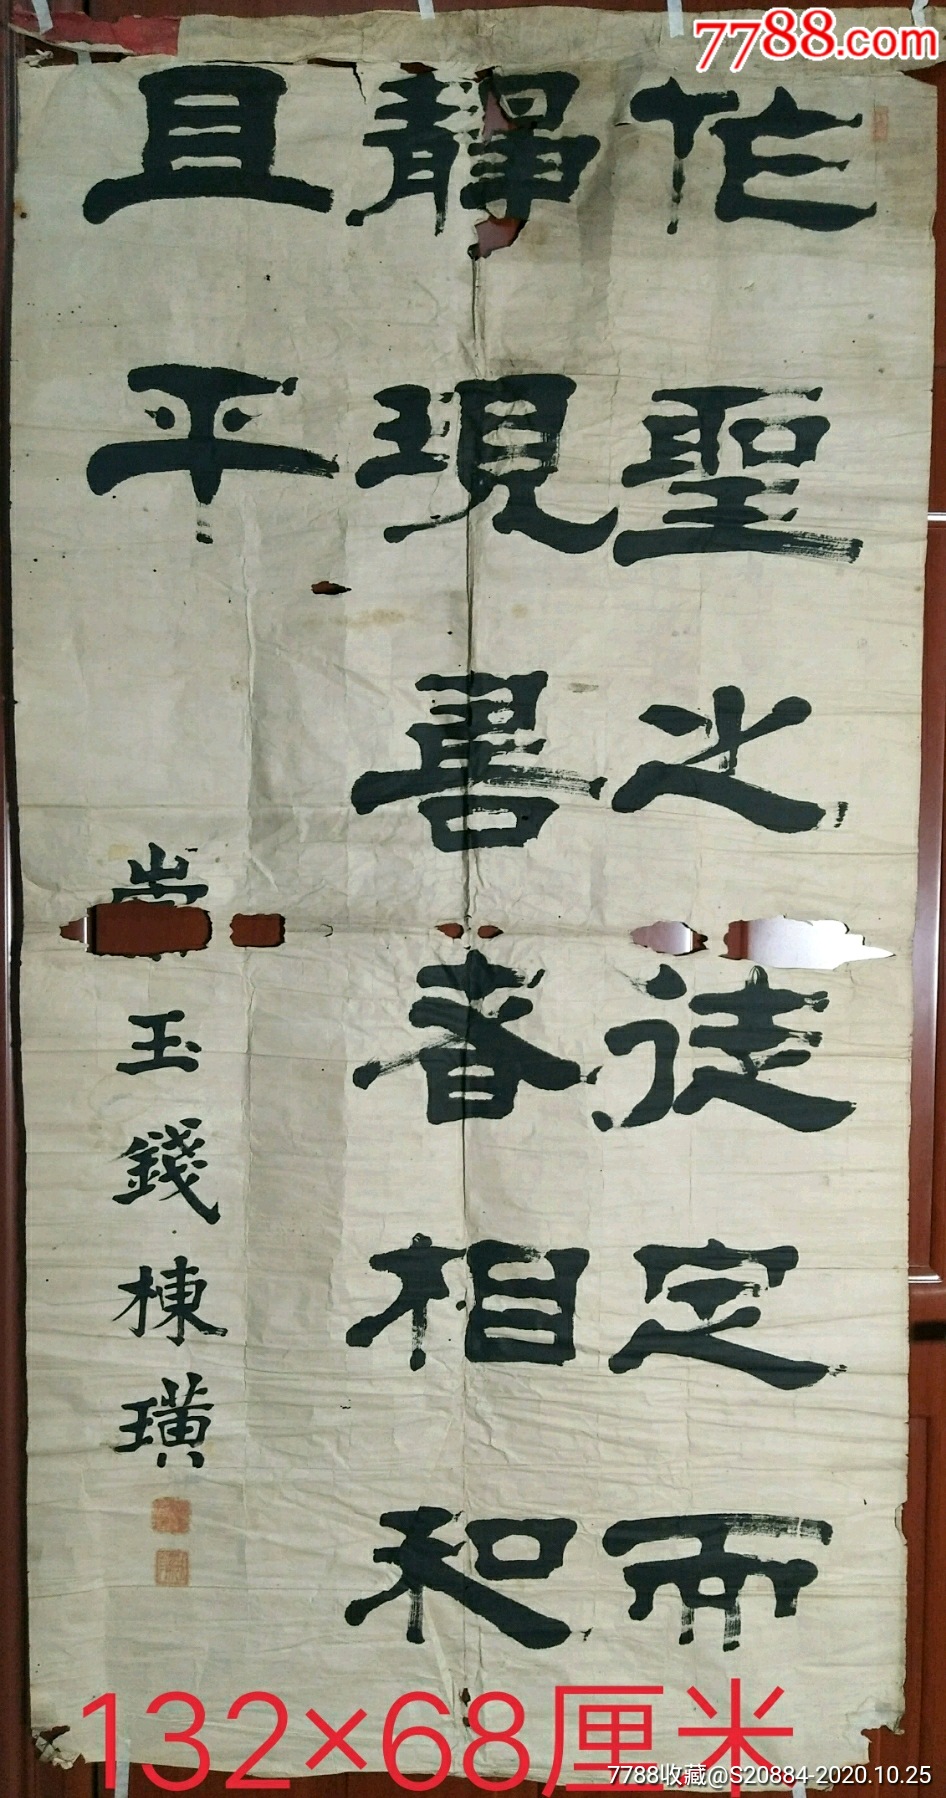 7788.com
作聖之徒定而
靜現善者相和
且平
玉錢棟璜
132×68厘米
7788收藏@S20884-2020.10.25